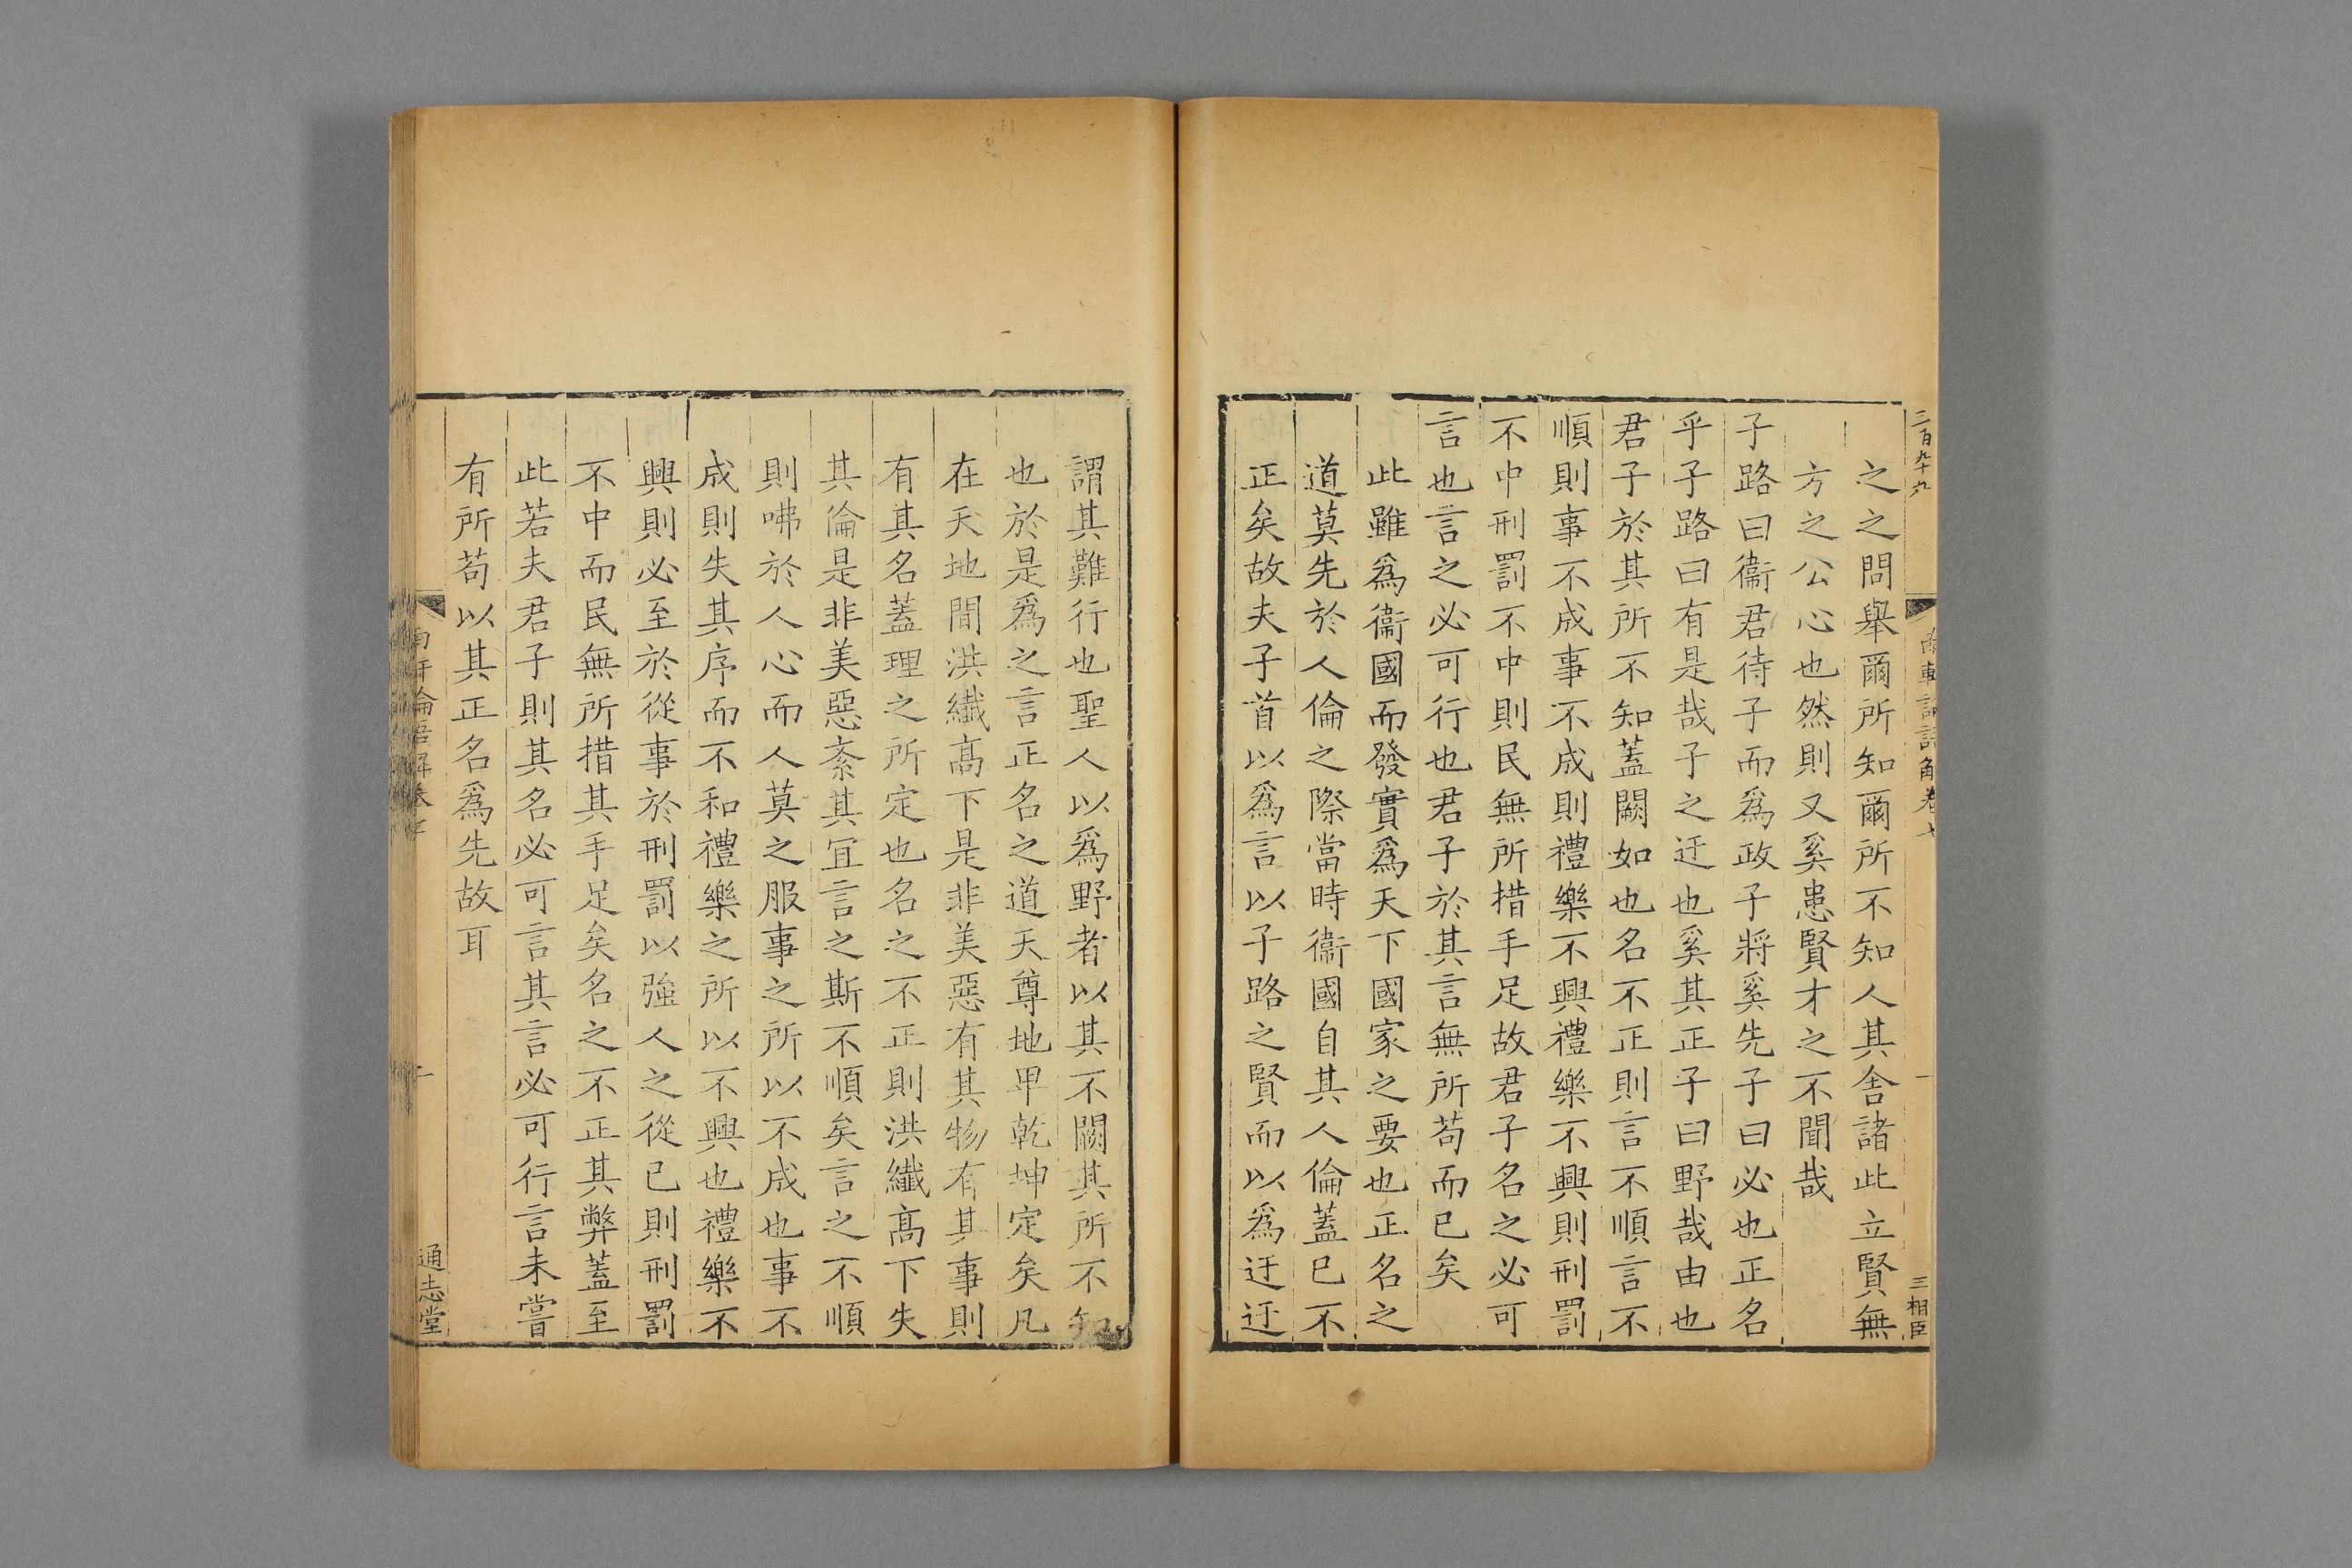 三百九十九
三相臣
之之問舉爾所知爾所不知人其舍諸此立賢無
方之公心也然則又奚患賢才之不聞哉
子路曰衞君待子而爲政子將奚先子曰必也正名
乎子路曰有是哉子之迂也奚其正子曰野哉由也
君子於其所不知蓋闕如也名不正則言不順言不
順則事不成事不成則禮樂不興禮樂不興則刑罰
不中刑罰不中則民無所措手足故君子名之必可
言也言之必可行也君子於其言無所茍而已矣
此雖爲衞國而發實爲天下國家之要也正名之
道莫先於人倫之際當時衞國自其人倫蓋已不
正矣故夫子首以爲言以子路之賢而以爲迂迂
謂其難行也聖人以爲野者以其不闕其所不知
也於是爲之言正名之道天尊地卑乾坤定矣凡
在天地間洪纖髙下是非美惡有其物有其事則
有其名蓋理之所定也名之不正則洪纖髙下失
其倫是非美惡紊其宜言之斯不順矣言之不順
則咈於人心而人莫之服事之所以不成也事不
成則失其序而不和禮樂之所以不興也禮樂不
興則必至於從事於刑罰以強人之從已則刑罰
不中而民無所措其手足矣名之不正其弊蓋至
此若夫君子則其名必可言其言必可行言未嘗
有所茍以其正名爲先故耳
通志堂